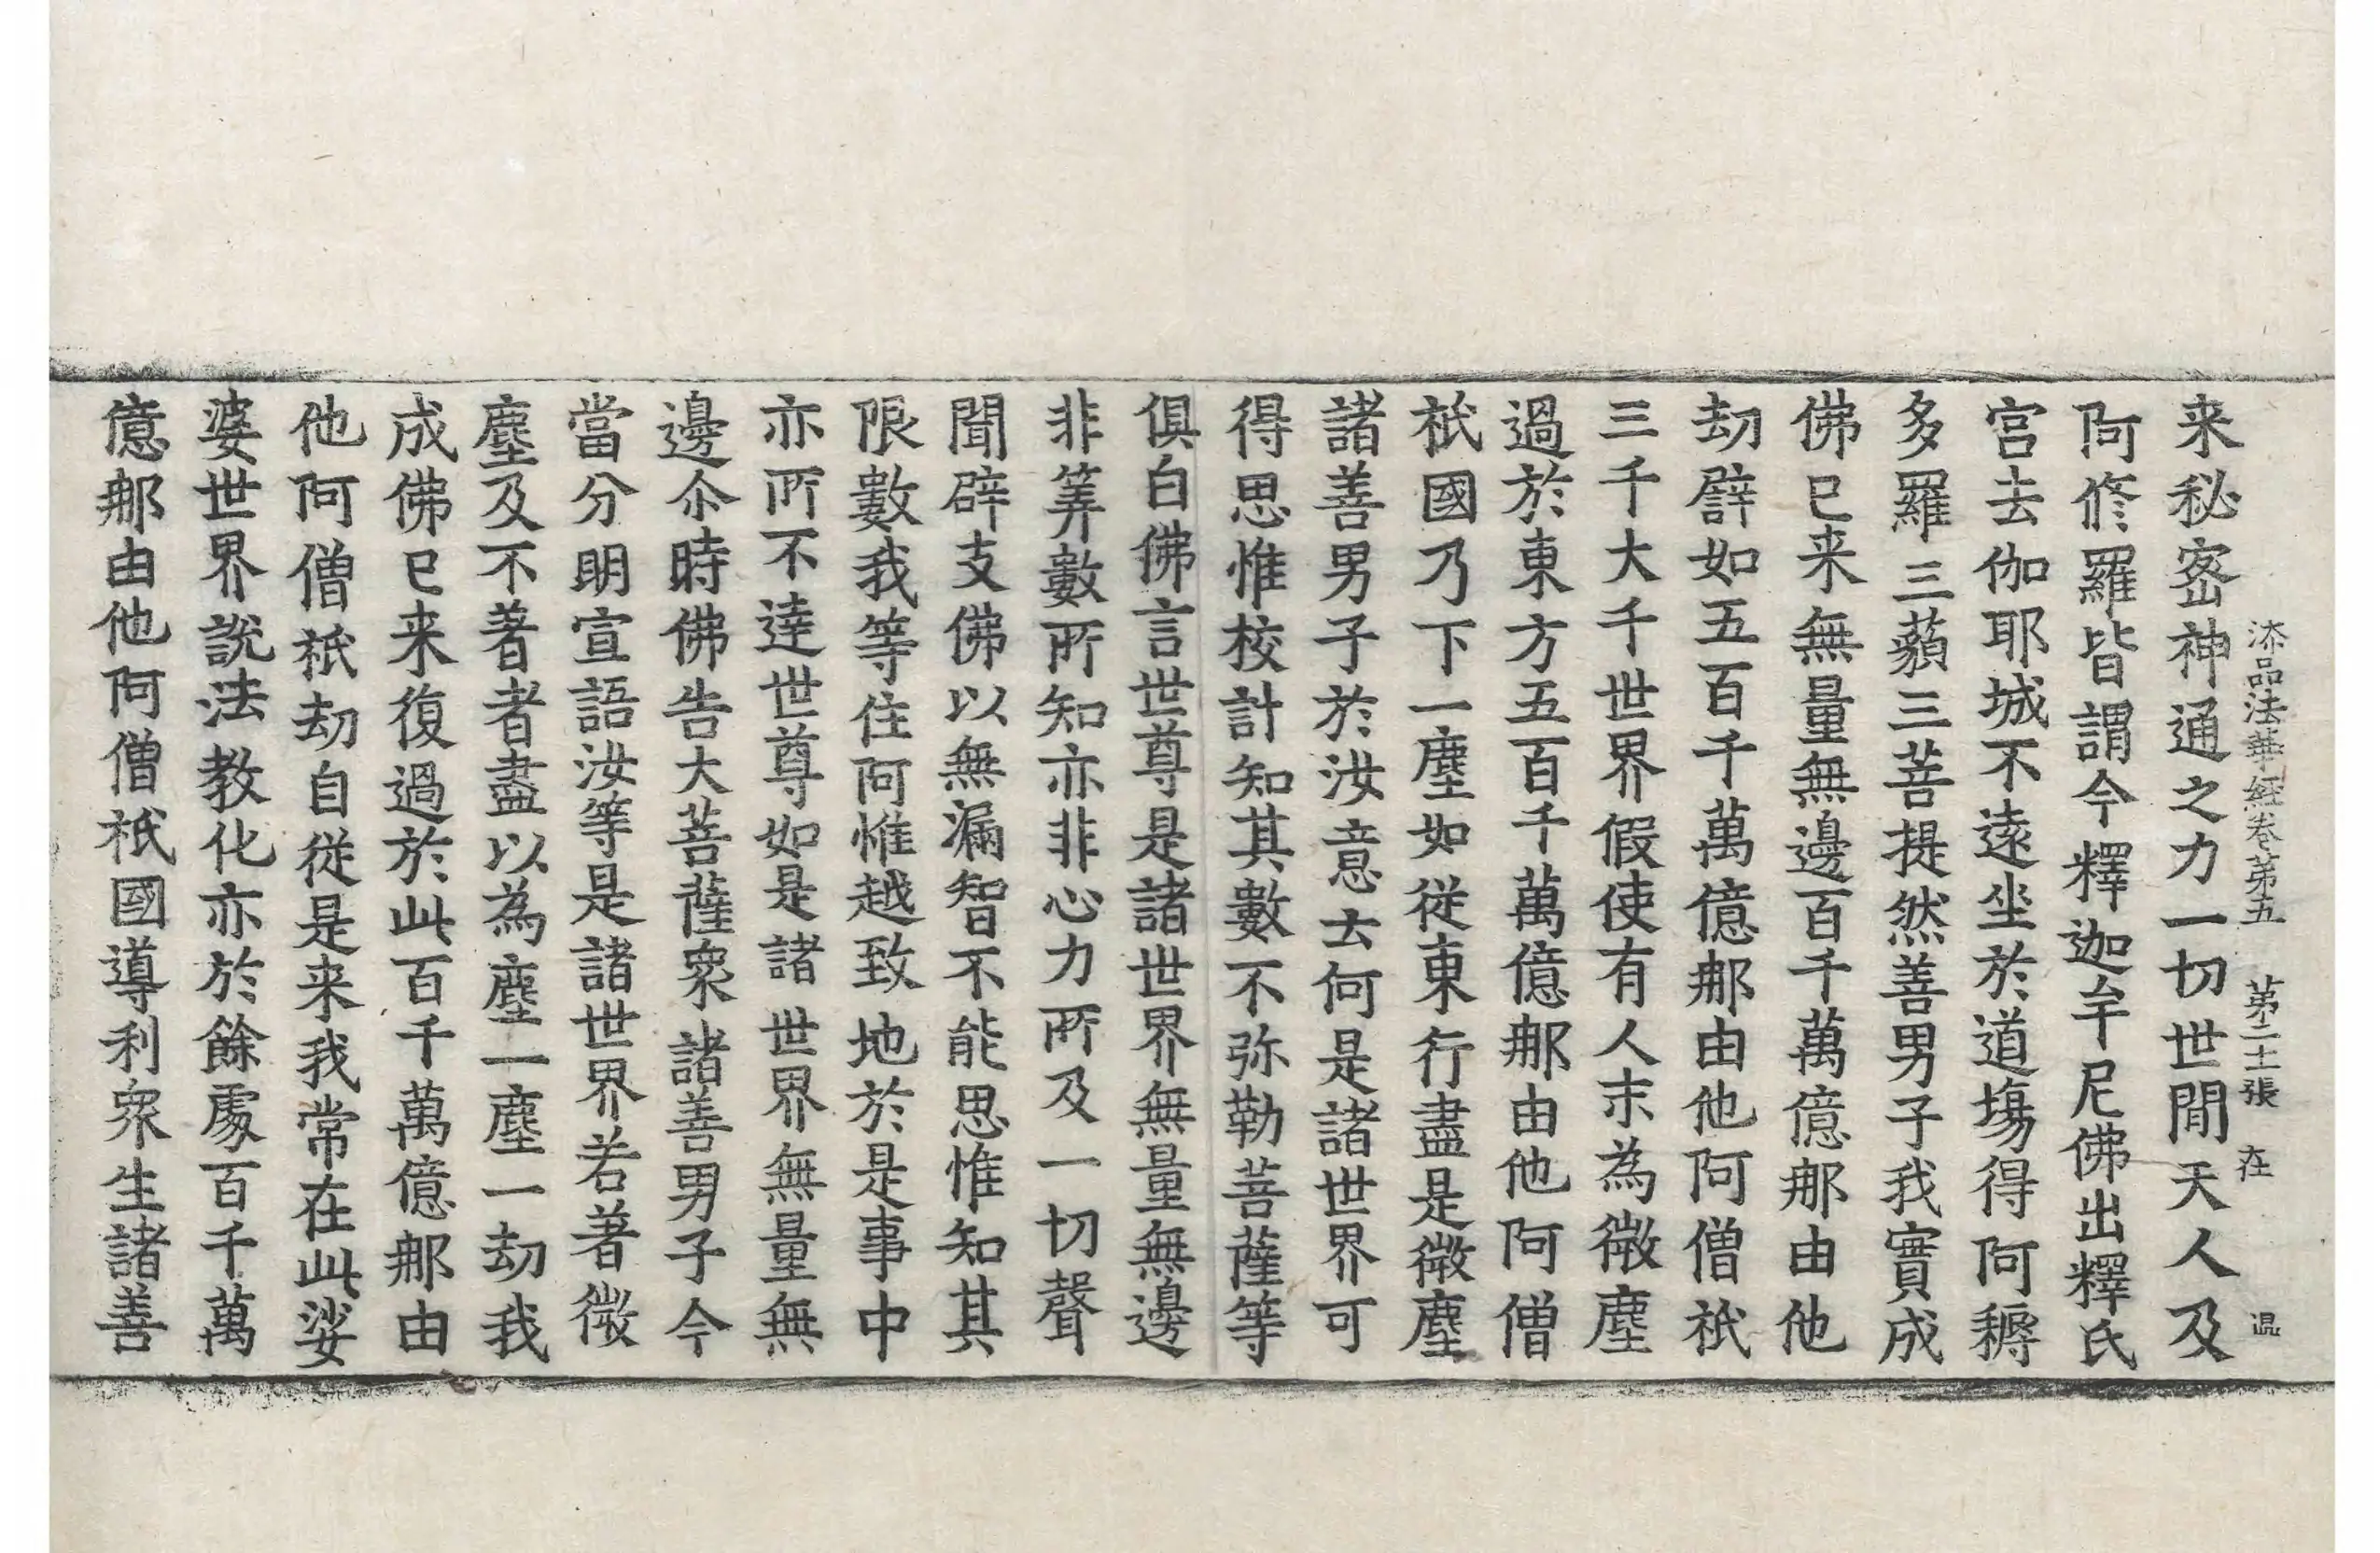 添品法華經卷苐五　苐二十張　在　𥁕
来秘宻神通之力一切世間天人及
阿修羅皆謂今釋迦牟尼佛出釋氏
宫去伽耶城不逺坐於道場得阿耨
多羅三藐三菩提然善男子我實成
佛已来無量無邊百千萬億那由他
劫譬如五百千萬億那由他阿僧祇
三千大千世界假使有人末為微塵
過於東方五百千萬億那由他阿僧
祇國乃下一塵如從東行盡是微塵
諸善男子於汝意云何是諸世界可
得思惟校計知其數不弥勒菩薩等
俱白佛言世尊是諸世界無量無邊
非筭數所知亦非心力所及一切聲
聞辟支佛以無漏智不能思惟知其
限數我等住阿惟越致地於是事中
亦所不達世尊如是諸世界無量無
邊尒時佛告大菩薩衆諸善男子今
當分明宣語汝等是諸世界若著微
塵及不著者盡以為塵一塵一劫我
成佛已来復過於此百千萬億那由
他阿僧祇劫自從是来我常在此娑
婆世界說法教化亦於餘處百千萬
億那由他阿僧祇國導利衆生諸善